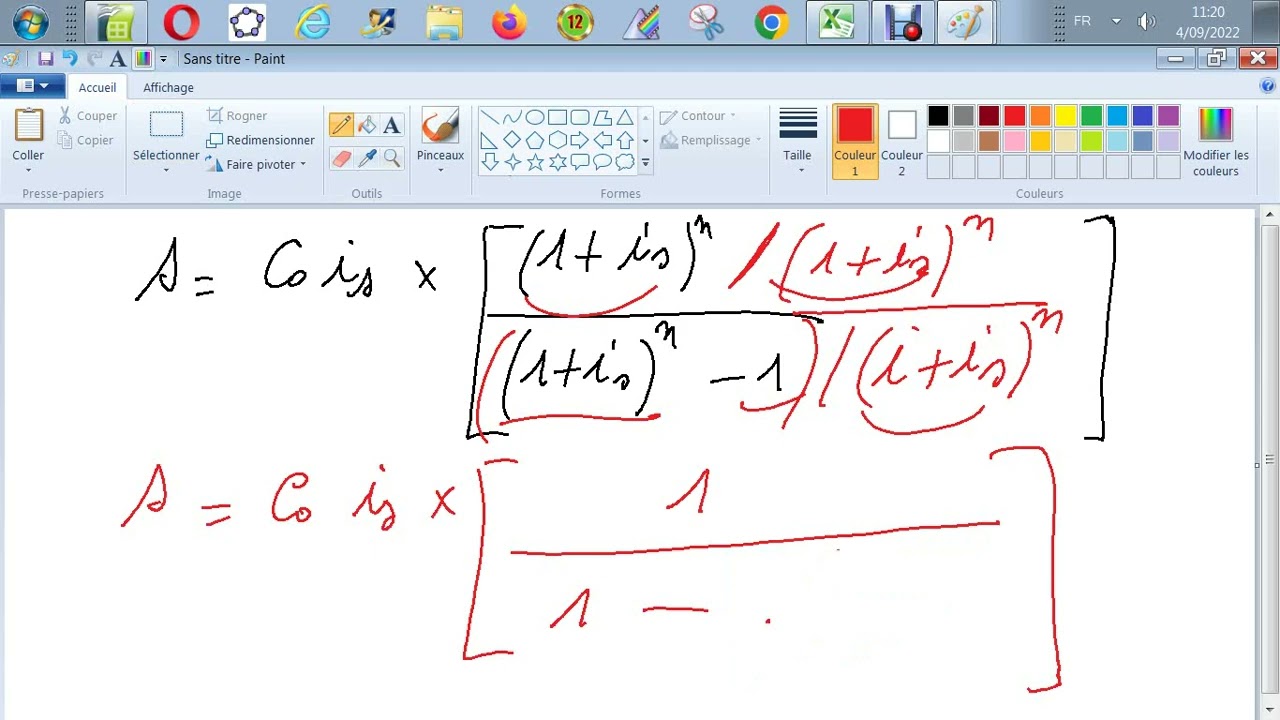 12
FR
11:20
4/09/2022
Sans titre - Paint
Accueil Affichage
Coller
Couper
Copier
Presse-papiers
Sélectionner
Rogner
Redimensionner
Faire pivoter
Image
A
Outils
Pinceaux
Contour
Remplissage
Formes
Taille
Couleur 1
Couleur 2
Modifier les couleurs
Couleurs
s = Co is × [ (1+is)^n / (1+is)^n
((1+is)^n - 1) / (i+is)^n ]
s = Co is × [ 1
1 - . ]